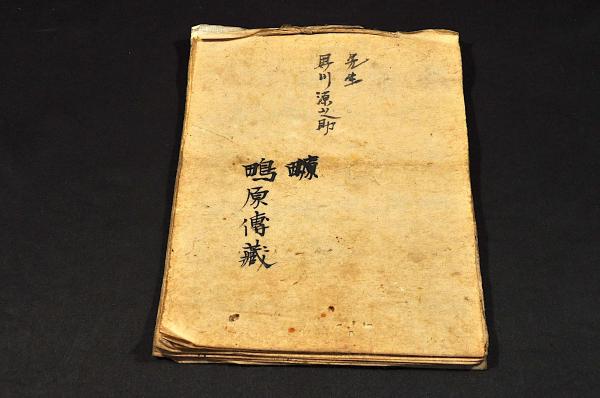 先生
川源之助
鴫原傳藏